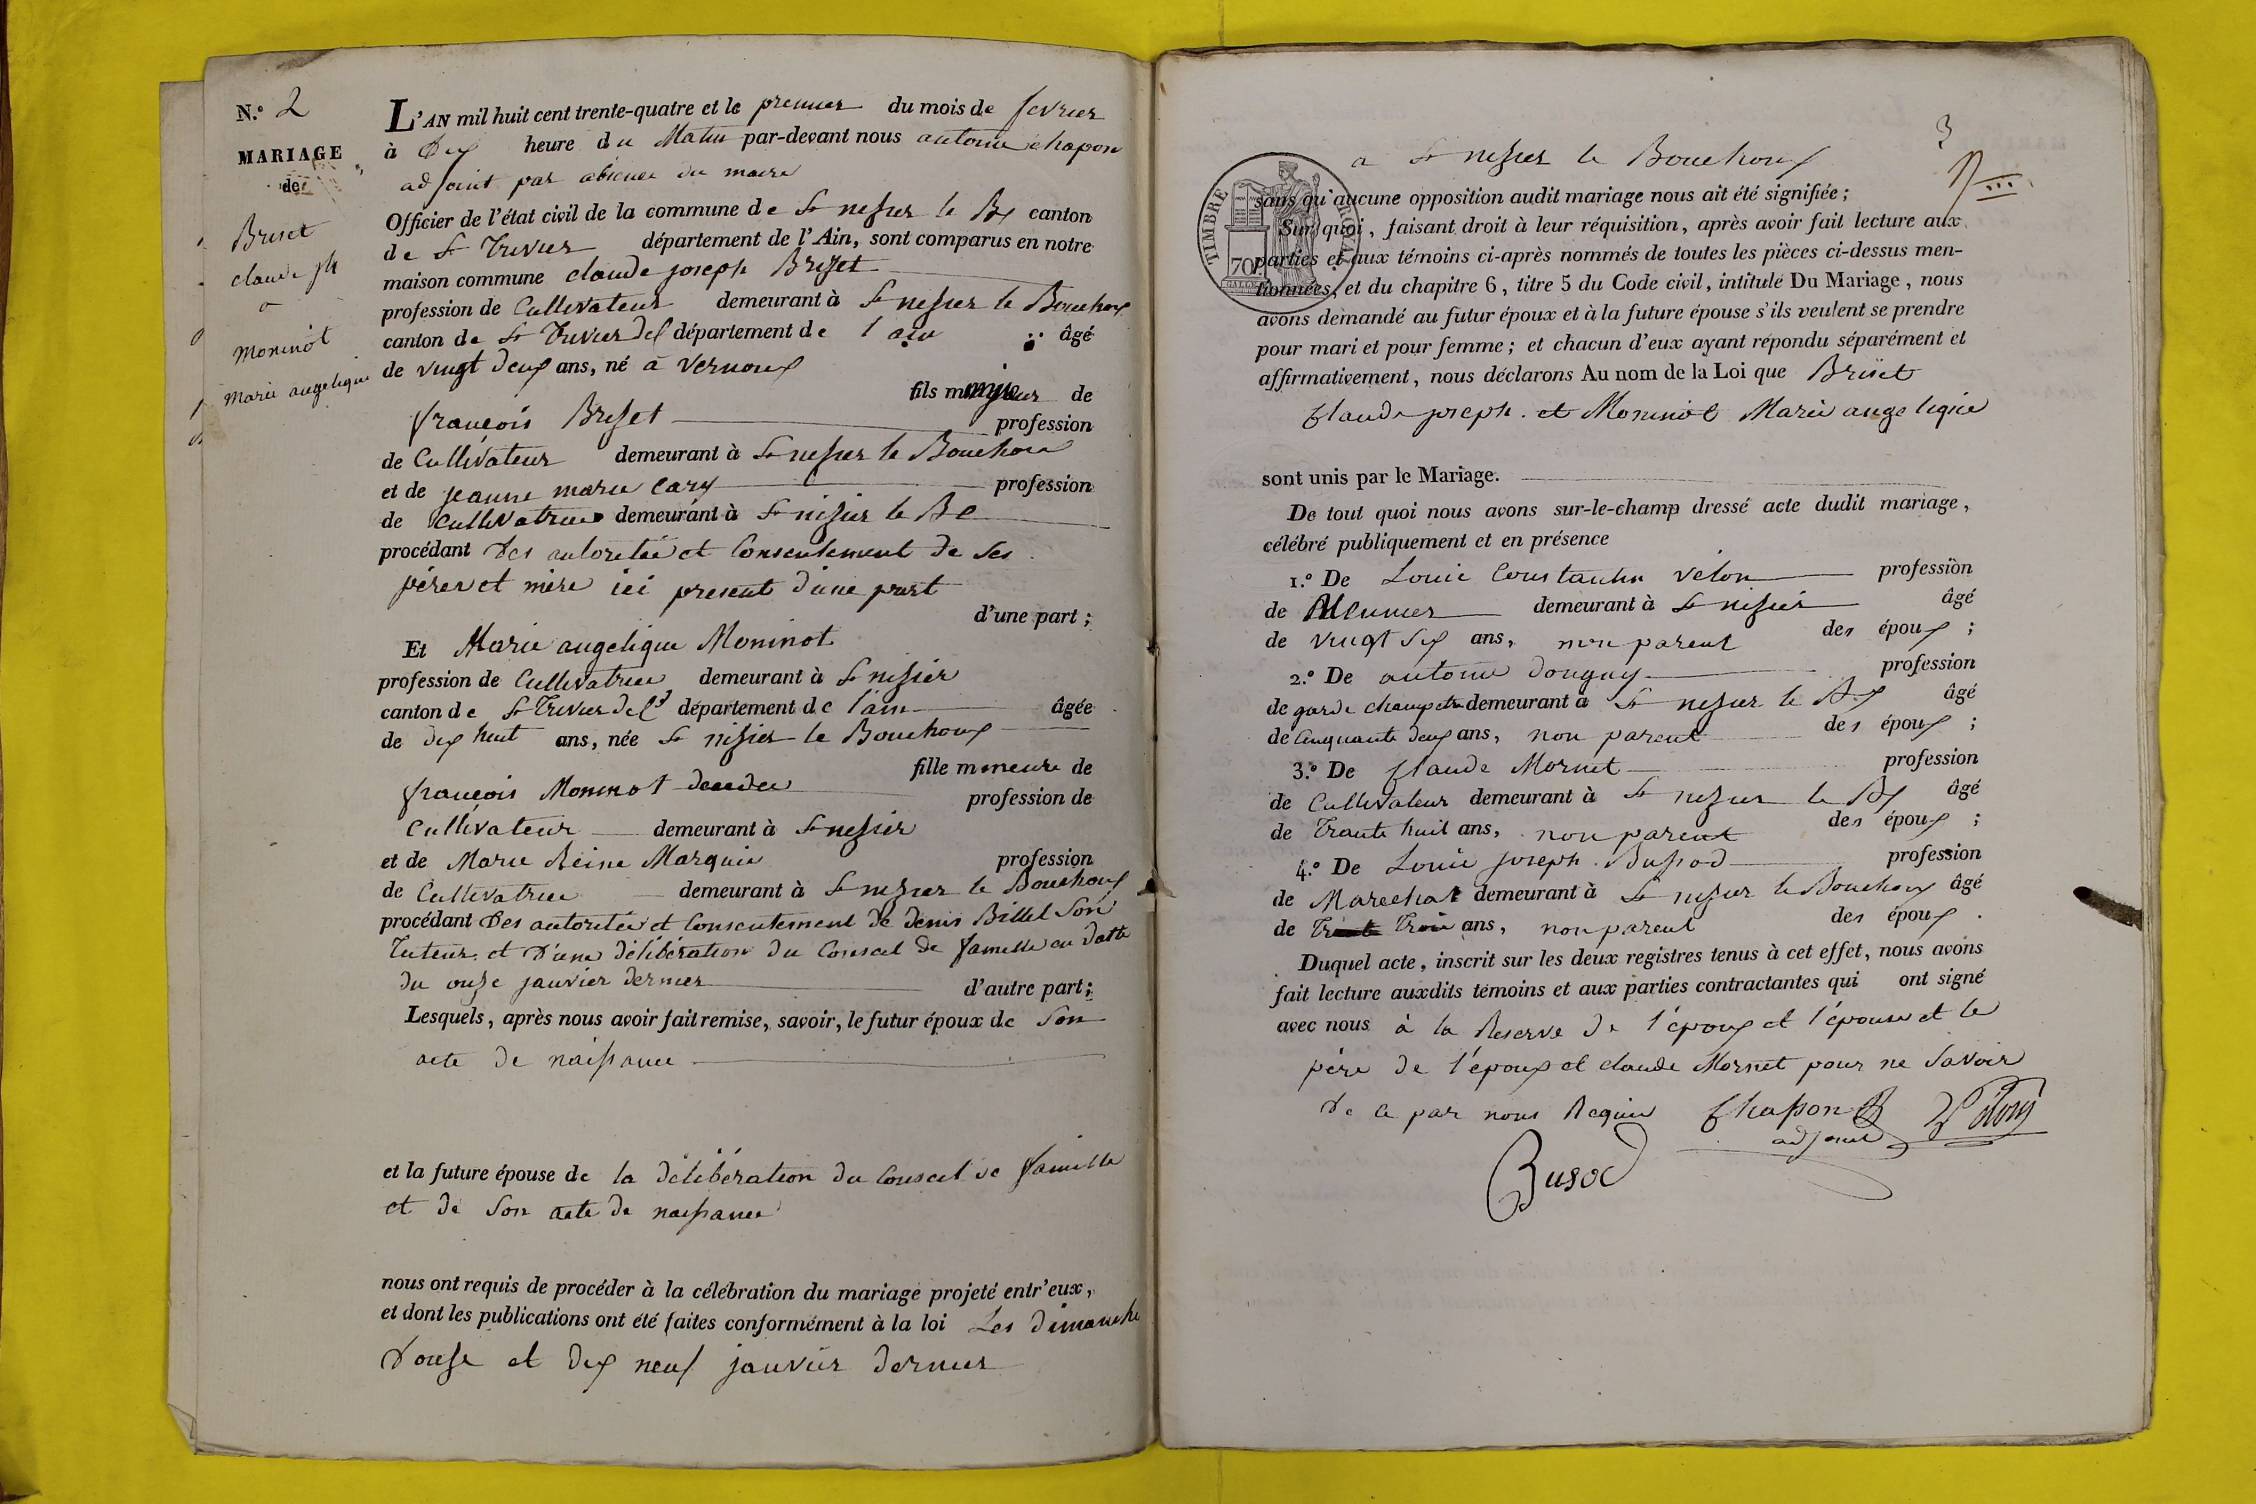 N.o 2
MARIAGE
de
Briset
claude jh
a
Moninot
Marie angelique
L'AN mil huit cent trente-quatre et le premier du mois de fevrier
à Dix heure du Matin par-devant nous antoine chapon
adjoint par absence du maire
Officier de l'état civil de la commune de St nizier le Bx canton
de St Trivier département de l'Ain, sont comparus en notre
maison commune claude joseph Briset
profession de Cultivateur demeurant à St nizier le Bouchoux
canton de St Trivier de Ct département de l'ain âgé
de vingt deux ans, né à vernoux
fils mineur de
françois Briset profession
de Cultivateur demeurant à St nizier le Bouchoux
et de jeanne marie Cary profession
de Cultivatrice demeurant à St nizier le Be
procédant Des autoritée et Consentement de Ses
pérer et mère ici present d'une part
d'une part ;
Et Marie angelique Moninot
profession de Cultivatrice demeurant à St nizier
canton de St Trivier de Ct département de l'ain âgée
de dix huit ans, née St nizier le Bouchoux
fille mineure de
françois Moninot decedee profession de
Cultivateur demeurant à St nizier
et de Marie Reine Marquis profession
de Cultivatrice demeurant à St nizier le Bouchoux
procédant Des autoritée et Consentement de denis Billet Son
Tuteur et D'une délibération du Conseil de famille en datte
du onze janvier dernier d'autre part ;
Lesquels, après nous avoir fait remise, savoir, le futur époux de Son
acte de naissance
et la future épouse de la délibération du Conseil de famille
et de Son acte de naissance
nous ont requis de procéder à la célébration du mariage projeté entr'eux,
et dont les publications ont été faites conformément à la loi Les dimanche
Douze et dix neuf janvier dernier
3
a St nizier le Bouchoux
TIMBRE ROYAL
70
sans qu'aucune opposition audit mariage nous ait été signifiée ;
Sur quoi, faisant droit à leur réquisition, après avoir fait lecture aux
parties et aux témoins ci-après nommés de toutes les pièces ci-dessus men-
tionnées, et du chapitre 6, titre 5 du Code civil, intitulé Du Mariage, nous
avons demandé au futur époux et à la future épouse s'ils veulent se prendre
pour mari et pour femme ; et chacun d'eux ayant répondu séparément et
affirmativement, nous déclarons Au nom de la Loi que Briset
Claude joseph. et Moninot Marie angelique
sont unis par le Mariage.
De tout quoi nous avons sur-le-champ dressé acte dudit mariage,
célébré publiquement et en présence
1.o De Louis Constantin Velon profession
de Meunier demeurant à St nizier âgé
de vingt Six ans, non parent des époux ;
2.o De antoine donguy profession
de garde champetre demeurant à St nizier le Bx âgé
de Cinquante deux ans, non parent des époux ;
3.o De Claude Mornet profession
de Cultivateur demeurant à St nizier le Bx âgé
de Trante huit ans, non parent des époux ;
4.o De Louis joseph Bussod profession
de Marechal demeurant à St nizier le Bouchoux âgé
de Trois ans, non parent des époux .
Duquel acte, inscrit sur les deux registres tenus à cet effet, nous avons
fait lecture auxdits témoins et aux parties contractantes qui ont signé
avec nous à la Reserve de l'époux et l'épouse et le
père de l'époux et claude Mornet pour ne Savoir
De ce par nous Requis Chapon
adjoint
Busod